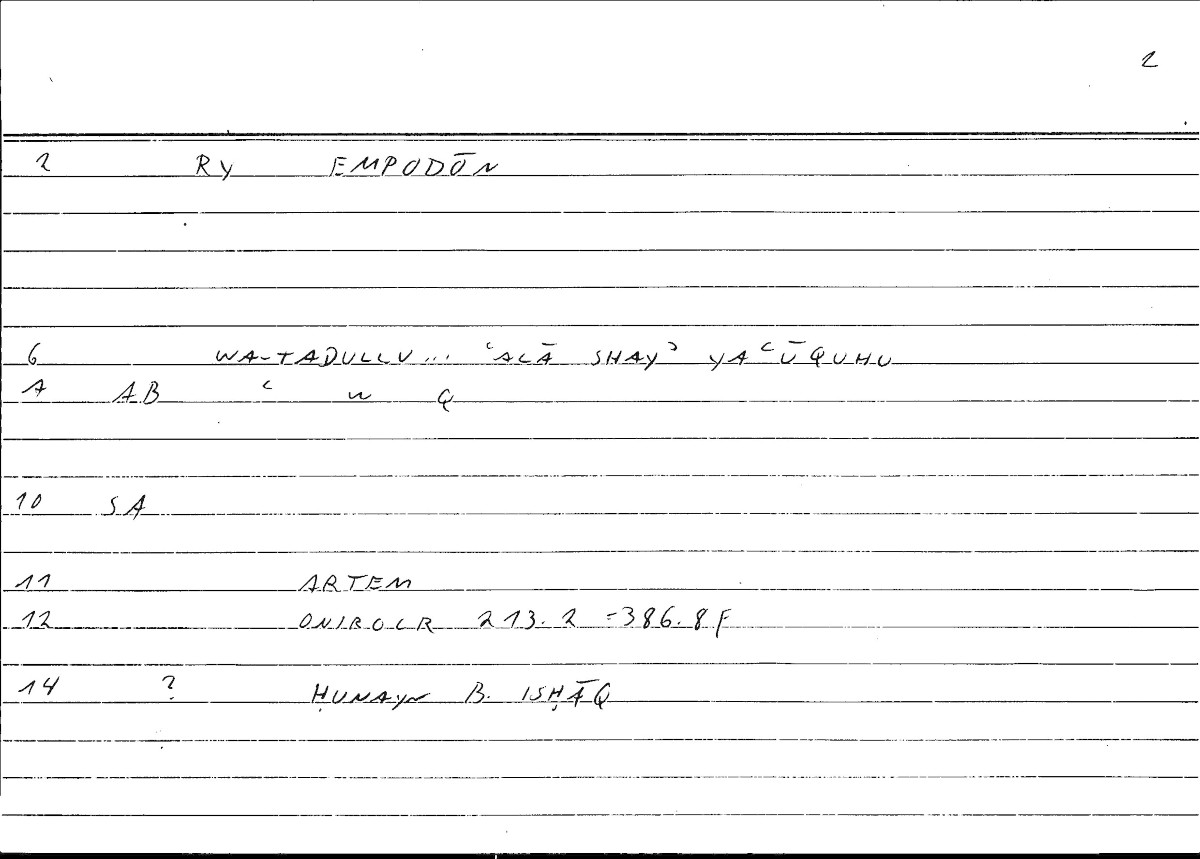 2
2 RY EMPODŌN
6 WA-TADULLU... ʿALĀ SHAYʾ YAʿŪQUHU
A AB ʿ W Q
10 SA
11 ARTEM
12 ONIROCR 213.2 =386.8F
14 ? ḤUNAYN B. ISḤĀQ